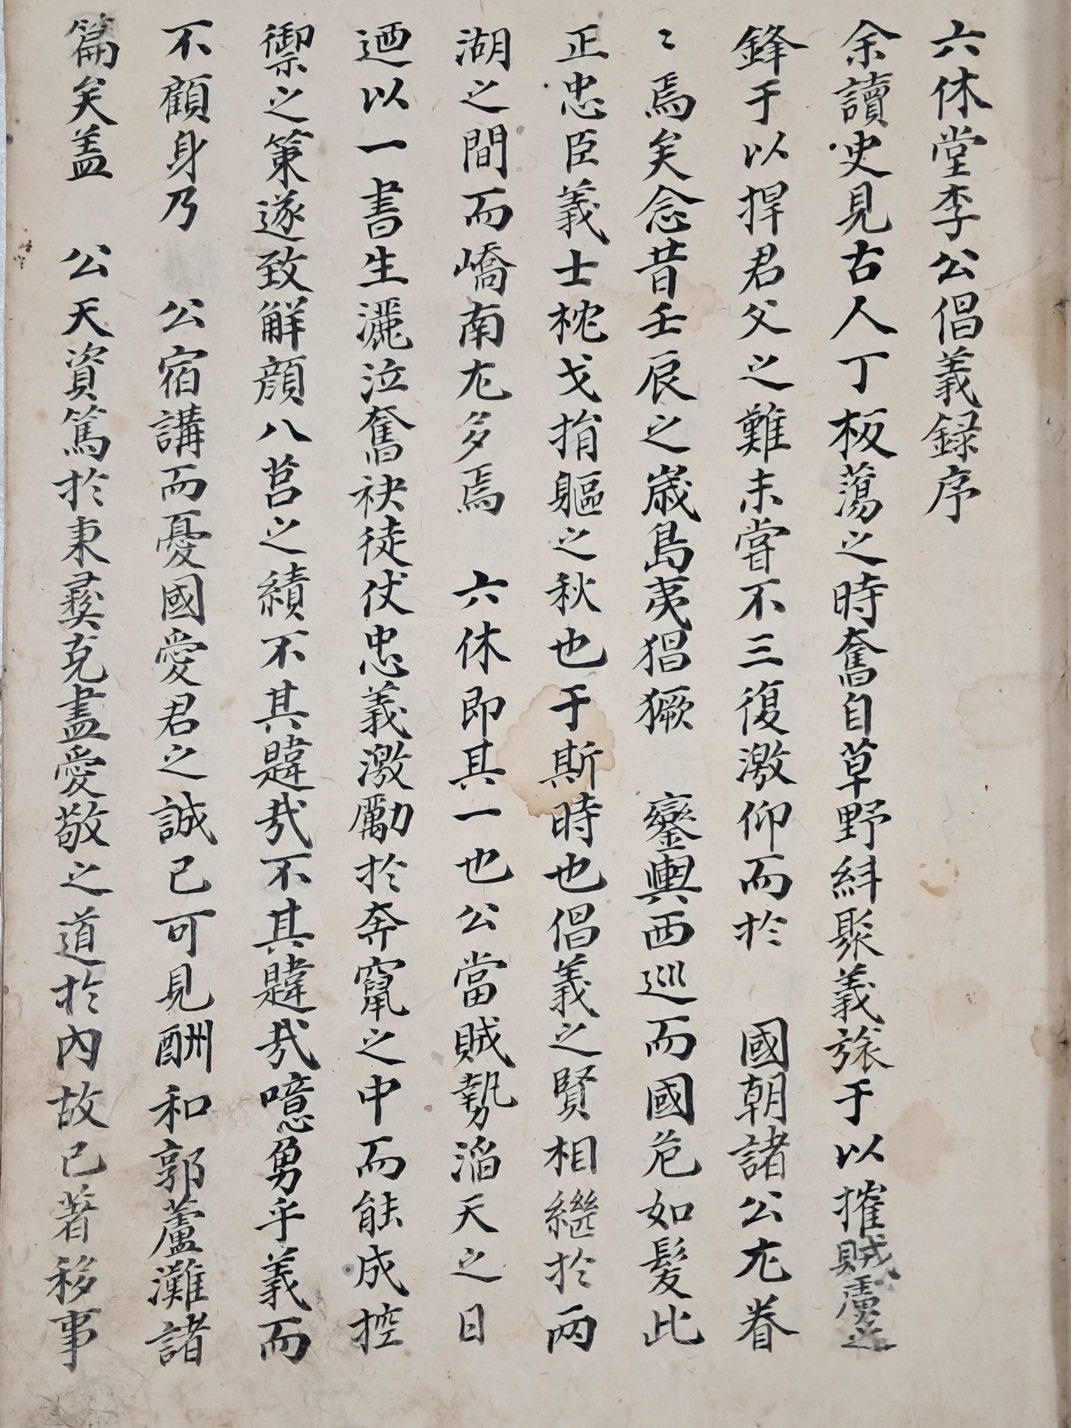 六休堂李公倡義録序
余讀史見古人丁板蕩之時奮自草野糾聚義旅于以摧賊虜之
鋒于以捍君父之難未嘗不三復激仰而於 國朝諸公尤眷
〻焉矣念昔壬辰之歲島夷猖獗 鑾輿西巡而國危如髮此
正忠臣義士枕戈捐軀之秋也于斯時也倡義之賢相繼於兩
湖之間而嶠南尤多焉 六休即其一也公當賊勢滔天之日
廼以一書生灑泣奮袂徒仗忠義激勵於奔竄之中而能成控
禦之策遂致觧顔八莒之績不其韙㢤不其韙㢤噫勇乎義而
不顧身乃 公宿講而憂國愛君之誠已可見酬和郭蘆灘諸
篇矣盖 公天資篤於秉彛克盡愛敬之道於內故已著移事